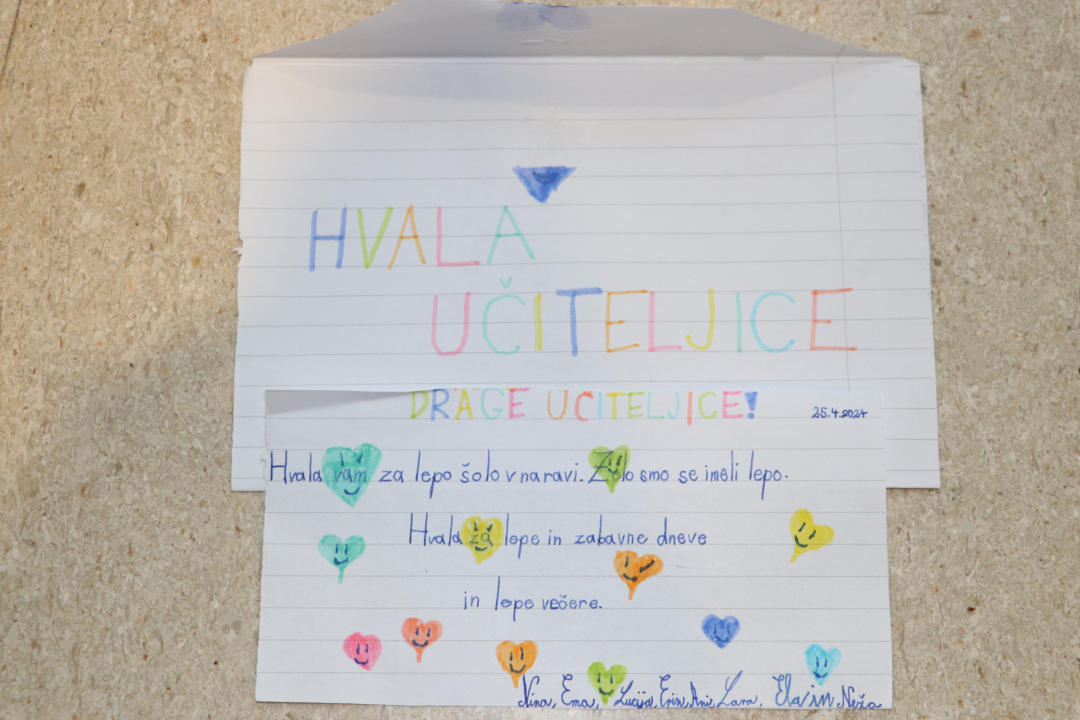 HVALA
UČITELJICE
DRAGE UČITELJICE!
25.4.2024
Hvala vam za lepo šolo v naravi. Zelo smo se imeli lepo.
Hvala za lepe in zabavne dneve
in lepe večere.
Nina, Ema, Lucija, Erin, Ani, Lara, Ela in Neža